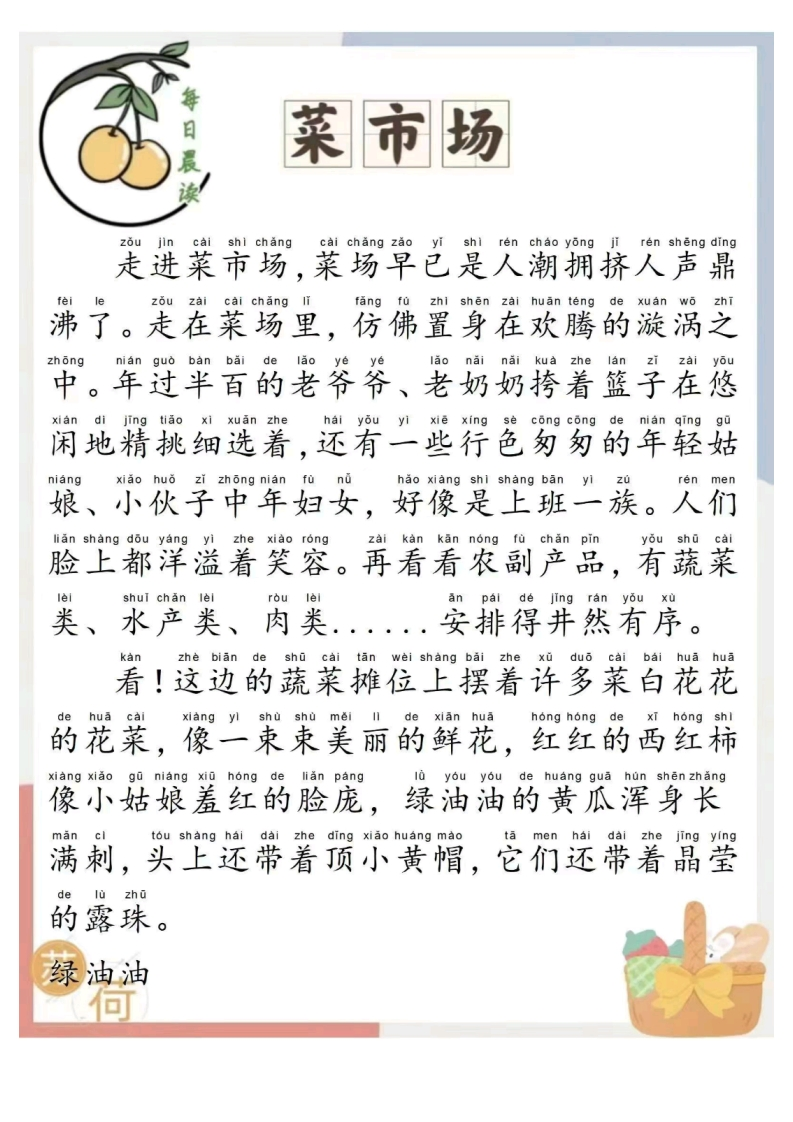 每日晨读
菜市场
zǒu jìn cài shì chǎng cài chǎng zǎo yǐ shì rén cháo yōng jǐ rén shēng dǐng
走进菜市场,菜场早已是人潮拥挤人声鼎
fèi le zǒu zài cài chǎng lǐ fǎng fú zhì shēn zài huān téng de xuán wō zhī
沸了。走在菜场里,仿佛置身在欢腾的漩涡之
zhōng nián guò bàn bǎi de lǎo yé yé lǎo nǎi nǎi kuà zhe lán zǐ zài yōu
中。年过半百的老爷爷、老奶奶挎着篮子在悠
xián dì jīng tiāo xì xuǎn zhe hái yǒu yì xiē xíng sè cōng cōng de nián qīng gū
闲地精挑细选着,还有一些行色匆匆的年轻姑
niáng xiǎo huǒ zǐ zhōng nián fù nǚ hǎo xiàng shì shàng bān yì zú rén men
娘、小伙子中年妇女,好像是上班一族。人们
liǎn shàng dōu yáng yì zhe xiào róng zài kàn kān nóng fù chǎn pǐn yǒu shū cài
脸上都洋溢着笑容。再看看农副产品,有蔬菜
lèi shuǐ chǎn lèi ròu lèi ān pái dé jǐng rán yǒu xù
类、水产类、肉类......安排得井然有序。
kàn zhè biān de shū cài tān wèi shàng bǎi zhe xǔ duō cài bái huā huā
看!这边的蔬菜摊位上摆着许多菜白花花
de huā cài xiàng yì shù shù měi lì de xiān huā hóng hóng de xī hóng shì
的花菜,像一束束美丽的鲜花,红红的西红柿
xiàng xiǎo gū niáng xiū hóng de liǎn páng lǜ yóu yóu de huáng guā hún shēn zhǎng
像小姑娘羞红的脸庞,绿油油的黄瓜浑身长
mǎn cì tóu shàng hái dài zhe dǐng xiǎo huáng mào tā men hái dài zhe jīng yíng
满刺,头上还带着顶小黄帽,它们还带着晶莹
de lù zhū
的露珠。
绿油油
荷